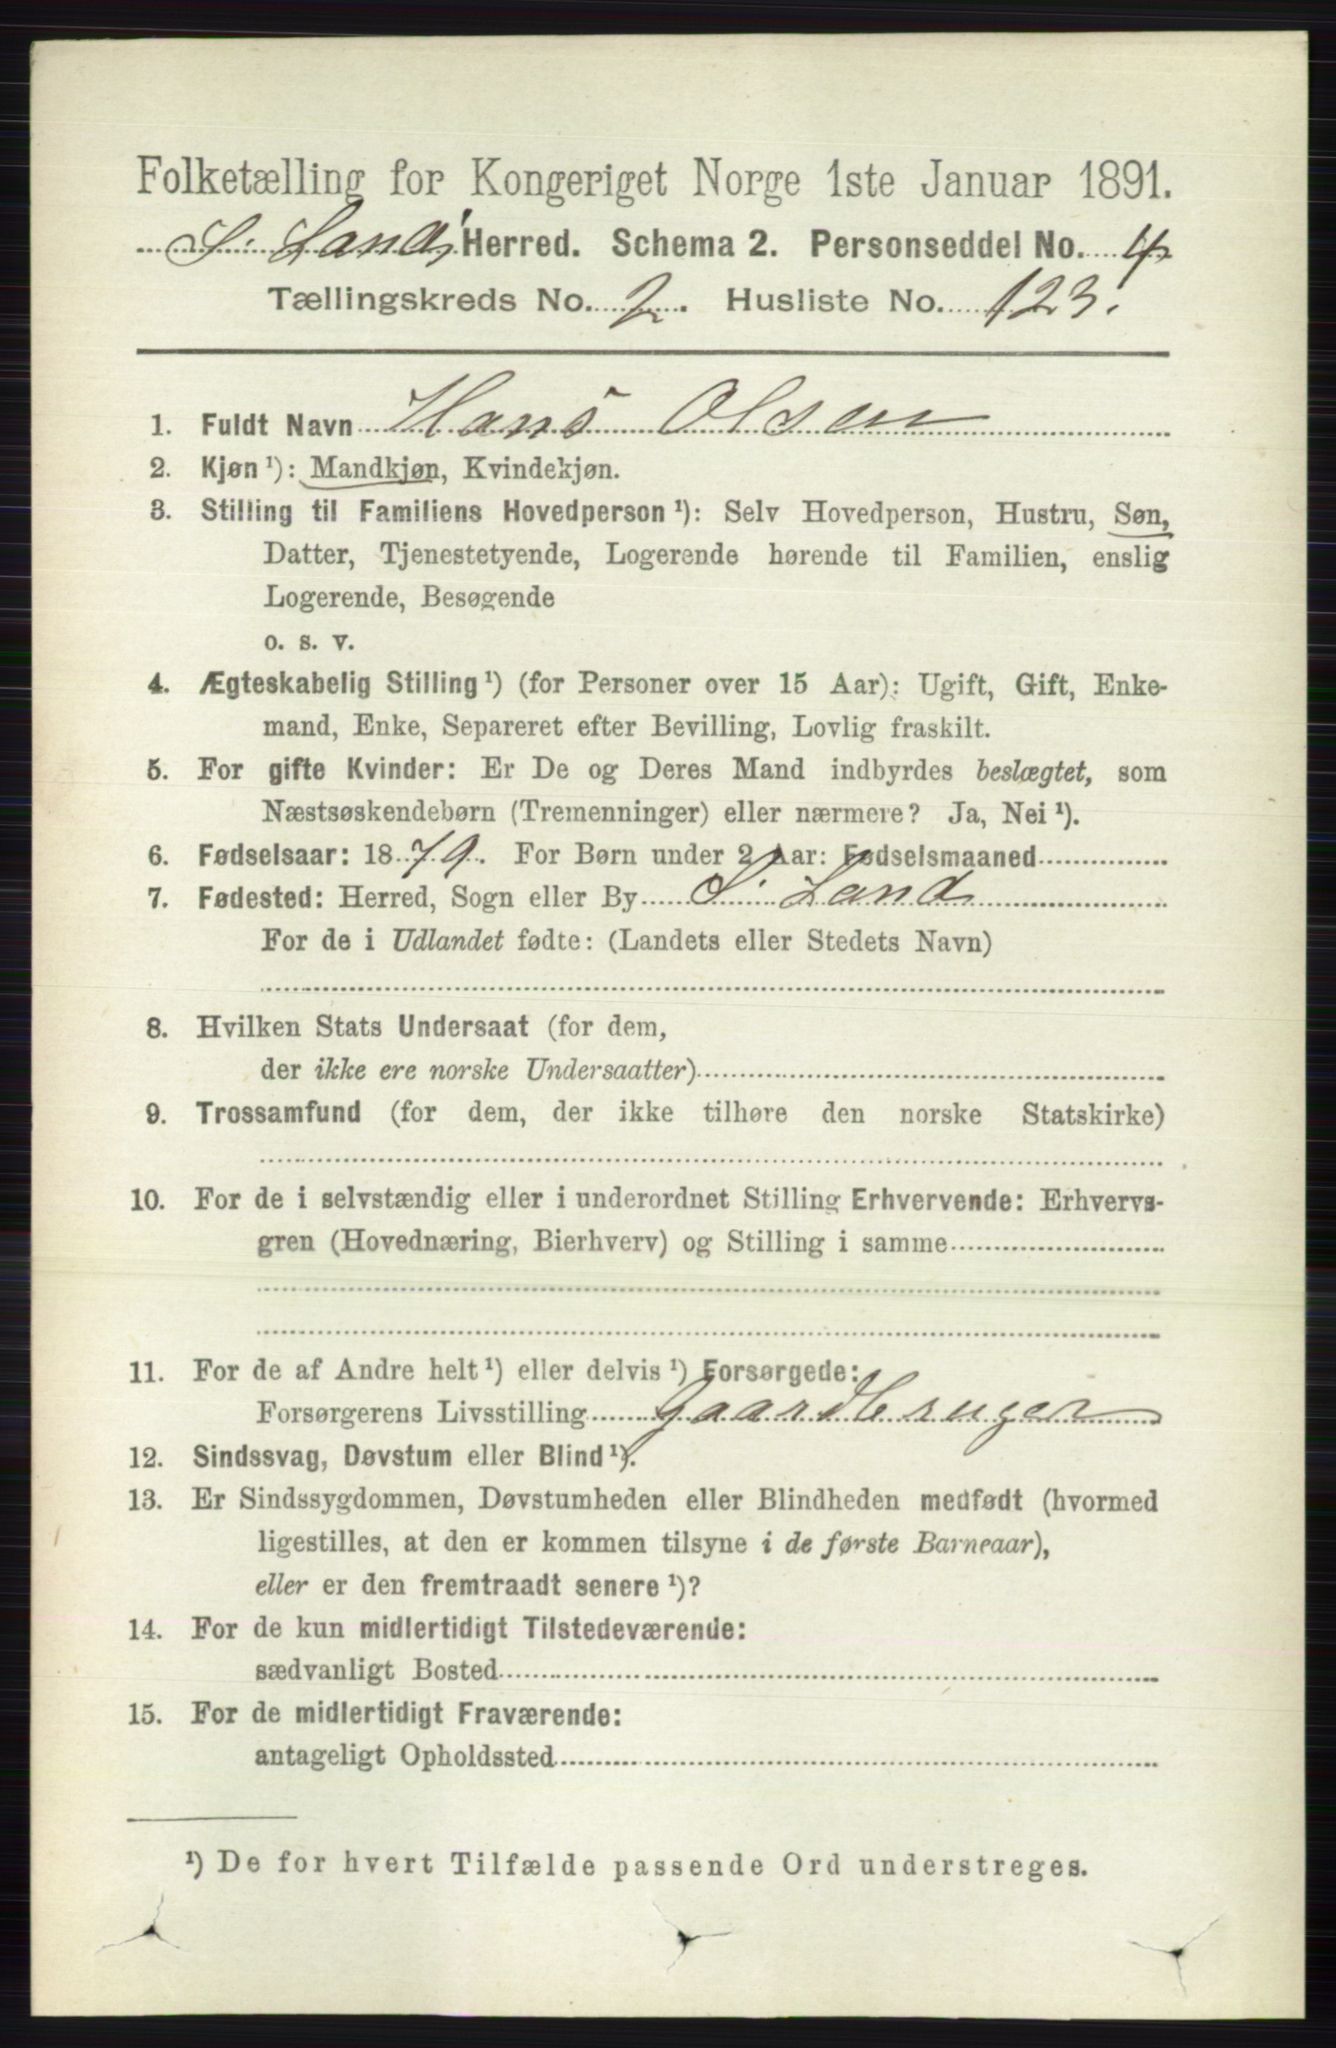 Folketælling for Kongeriget Norge 1ste Januar 1891.
S. Land Herred. Schema 2. Personseddel No. 4.
Tællingskreds No. 2. Husliste No. 123.
1. Fuldt Navn Hans Olsen
2. Kjøn¹): Mandkjøn, Kvindekjøn.
3. Stilling til Familiens Hovedperson¹): Selv Hovedperson, Hustru, Søn,
Datter, Tjenestetyende, Logerende hørende til Familien, enslig
Logerende, Besøgende
o. s. v.
4. Ægteskabelig Stilling¹) (for Personer over 15 Aar): Ugift, Gift, Enke-
mand, Enke, Separeret efter Bevilling, Lovlig fraskilt.
5. For gifte Kvinder: Er De og Deres Mand indbyrdes beslægtet, som
Næstsøskendebørn (Tremenninger) eller nærmere? Ja, Nei¹).
6. Fødselsaar: 1879. For Børn under 2 Aar: Fødselsmaaned
7. Fødested: Herred, Sogn eller By S. Land
For de i Udlandet fødte: (Landets eller Stedets Navn)
8. Hvilken Stats Undersaat (for dem,
der ikke ere norske Undersaatter)
9. Trossamfund (for dem, der ikke tilhøre den norske Statskirke)
10. For de i selvstændig eller i underordnet Stilling Erhvervende: Erhvervs-
gren (Hovednæring, Bierhverv) og Stilling i samme
11. For de af Andre helt¹) eller delvis¹) Forsørgede:
Forsørgerens Livsstilling Gaardbruger
12. Sindssvag, Døvstum eller Blind¹).
13. Er Sindssygdommen, Døvstumheden eller Blindheden medfødt (hvormed
ligestilles, at den er kommen tilsyne i de første Barneaar),
eller er den fremtraadt senere¹)?
14. For de kun midlertidigt Tilstedeværende:
sædvanligt Bosted
15. For de midlertidigt Fraværende:
antageligt Opholdssted
¹) De for hvert Tilfælde passende Ord understreges.